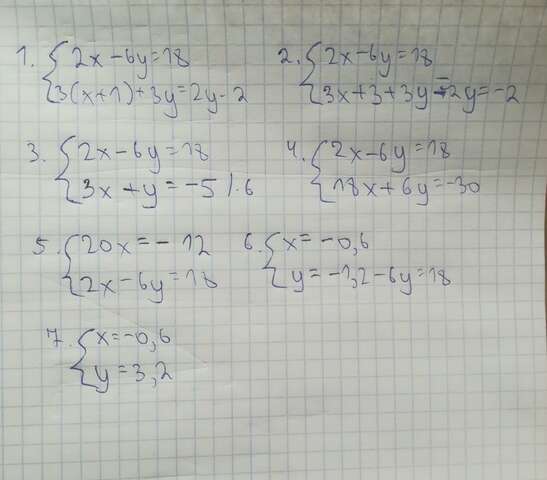 1. { 2x-6y=18
3(x+1)+3y=2y-2
2. { 2x-6y=18
3x+3+3y-2y=-2
3. { 2x-6y=18
3x+y=-5 /·6
4. { 2x-6y=18
18x+6y=-30
5. { 20x=-12
2x-6y=18
6. { x=-0,6
y=-1,2-6y=18
7. { x=-0,6
y=3,2